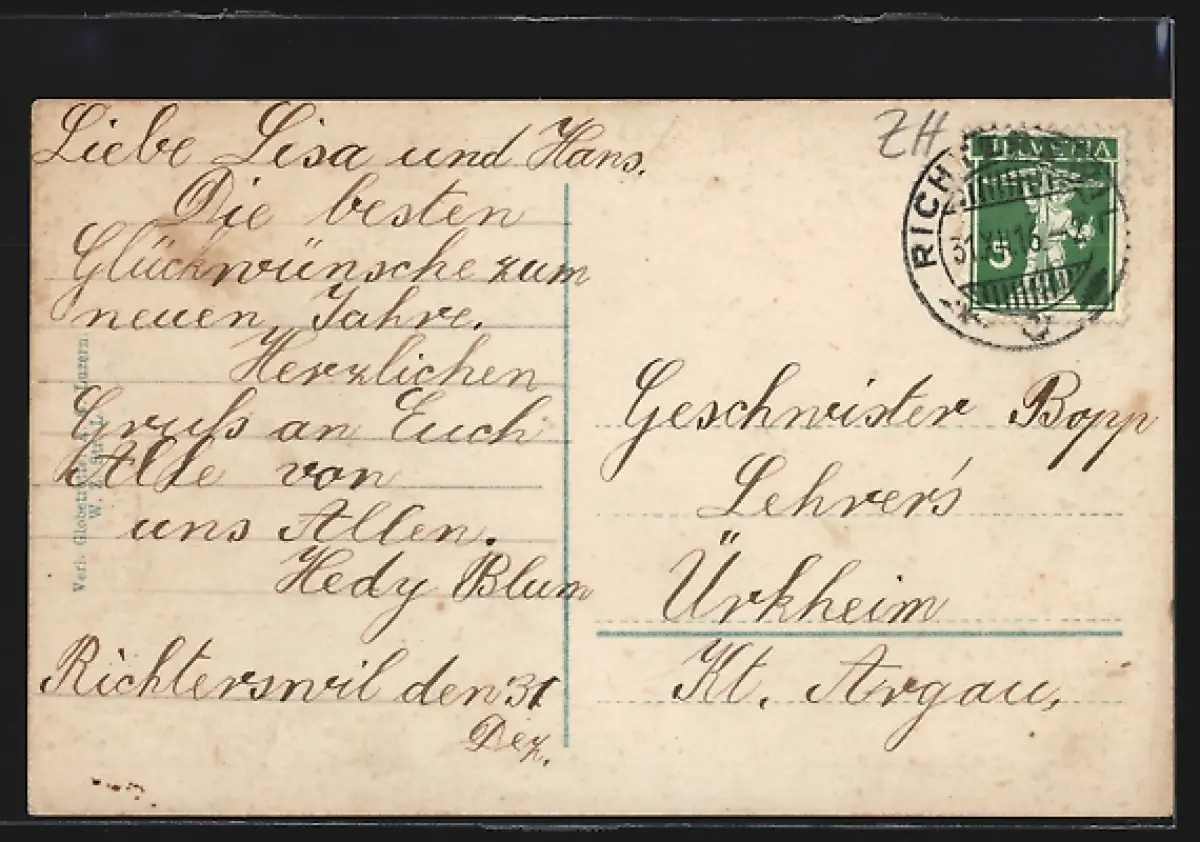 Liebe Lisa und Hans.
Die besten
Glückwünsche zum
neuen Jahre.
Herzlichen
Gruß an Euch
Alle von
uns Allen.
Hedy Blum
Richterswil den 31
Dez.
ZH
HELVETIA
5
31.XII.16
Geschwister Bopp
Lehrer's
Ürkheim
Kt. Argau,
Luzern